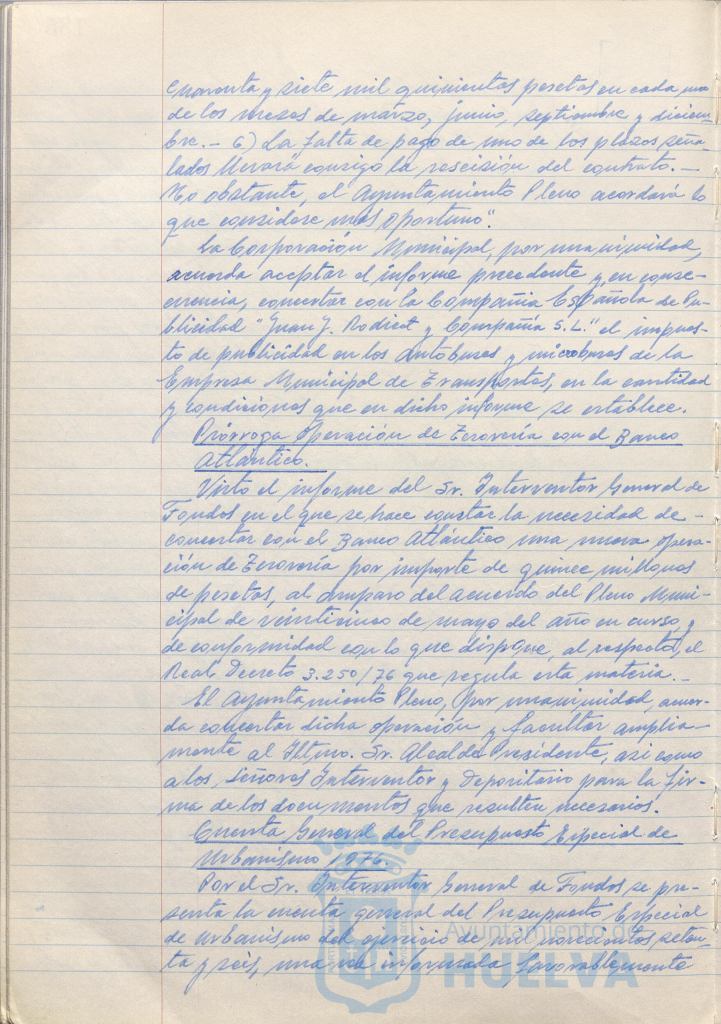 cuarenta y siete mil quinientas pesetas en cada uno
de los meses de marzo, junio, septiembre y diciem-
bre.- 6) La falta de pago de uno de los plazos seña-
lados llevará consigo la rescisión del contrato.-
No obstante, el Ayuntamiento Pleno acordará lo
que considere más oportuno".
La Corporación Municipal, por unanimidad,
acuerda aceptar el informe precedente y, en conse-
cuencia, concertar con la Compañía Española de Pu-
blicidad "Juan J. Rodicet y Compañía S.L." el impues-
to de publicidad en los autobuses y microbuses de la
Empresa Municipal de Transportes, en la cantidad
y condiciones que en dicho informe se establece.
Prórroga operación de Tesorería con el Banco
Atlántico.
Visto el informe del Sr. Interventor General de
Fondos en el que se hace constar la necesidad de-
concertar con el Banco Atlántico una nueva opera-
ción de Tesorería por importe de quince millones
de pesetas, al amparo del acuerdo del Pleno Muni-
cipal de veinticinco de mayo del año en curso y
de conformidad con lo que dispone, al respecto, el
Real Decreto 3.250/76 que regula esta materia.-
El Ayuntamiento Pleno, por unanimidad, acuer-
da concertar dicha operación y facultar amplia-
mente al Iltmo. Sr. Alcalde Presidente, así como
a los Señores Interventor y Depositario para la fir-
ma de los documentos que resulten necesarios.
Cuenta General del Presupuesto Especial de
Urbanismo 1976.
Por el Sr. Interventor General de Fondos se pre-
senta la cuenta general del Presupuesto Especial
de Urbanismo del ejercicio de mil novecientos seten-
ta y seis, una vez informada favorablemente
Ayuntamiento de
HUELVA